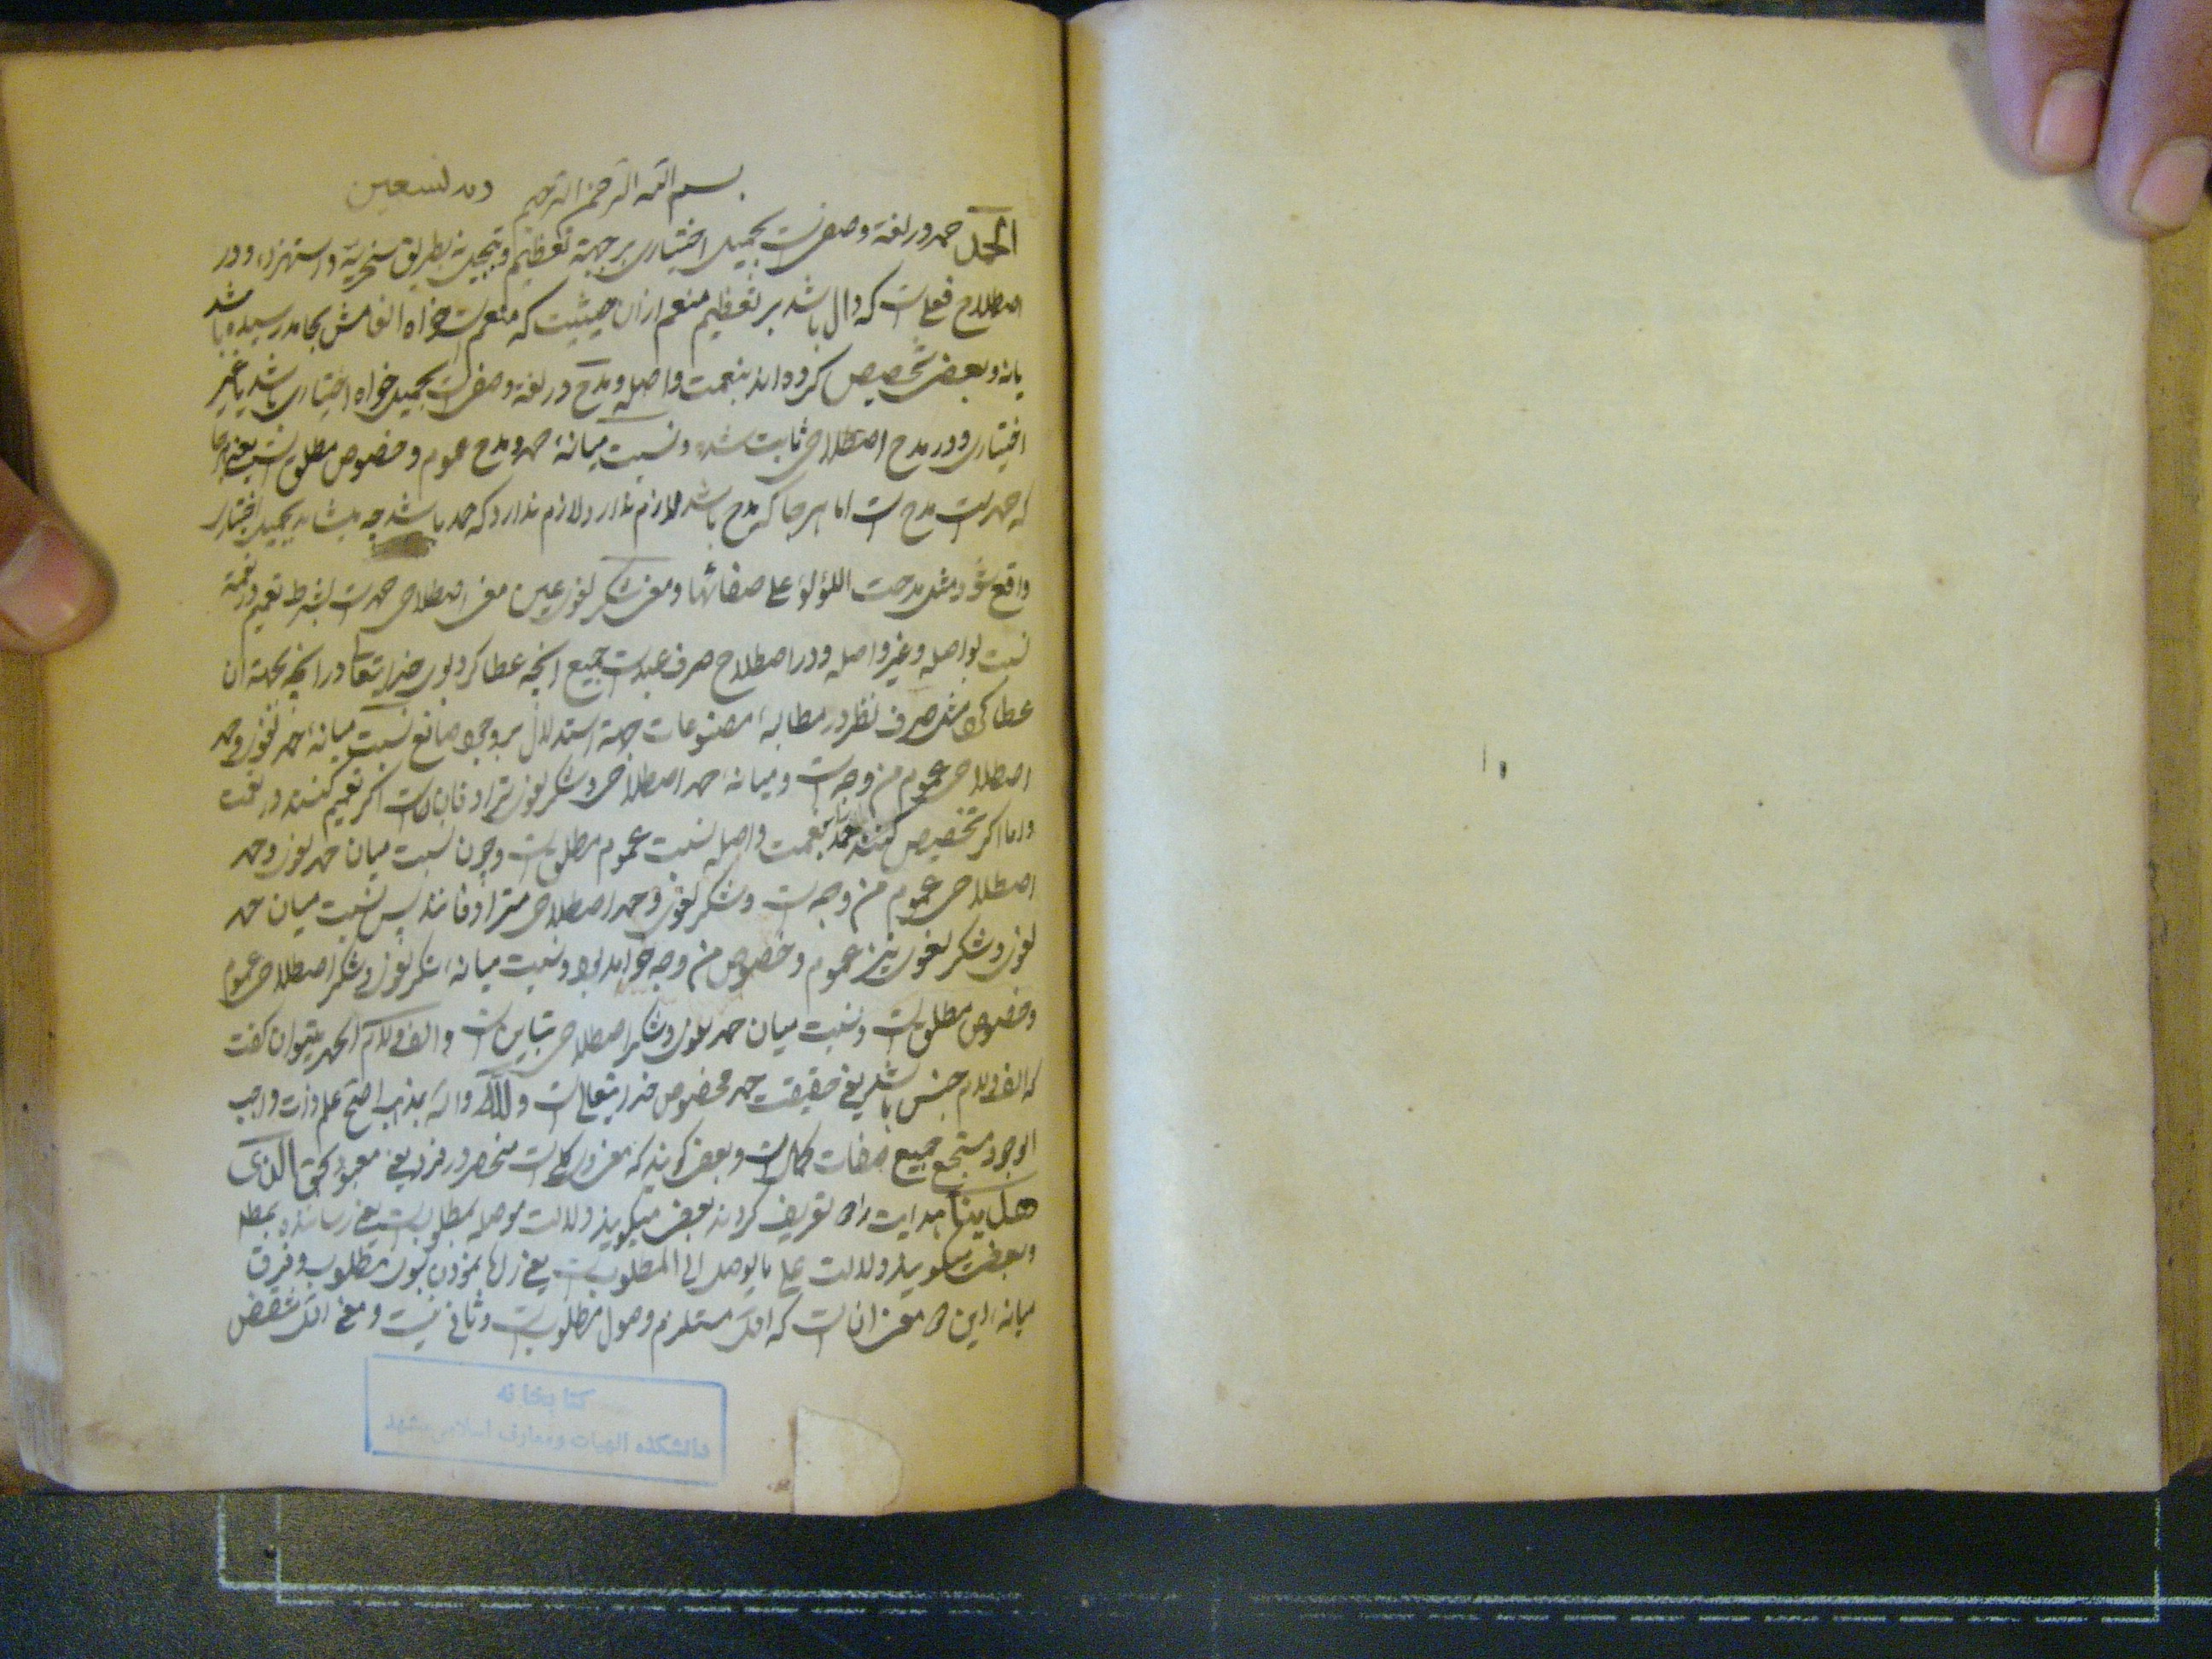 بسم الله الرحمن الرحیم وبه نستعین
الحمد حمد در لغة وصف است بجمیل اختیاری بر جهة تعظیم و تبجیل نه بطریق سخریة و استهزاء و در
اصطلاح فعلی است که دال باشد بر تعظیم منعم از ان حیثیت که منعم است خواه انعامش بحامد رسیده باشد
یا نه و بعضی تخصیص کرده اند بنعمت واصله و مدح در لغة وصف است بجمیل خواه اختیاری باشد یا غیر
اختیاری و در مدح اصطلاحی ثابت نشده و نسبت میانهٔ حمد و مدح عموم و خصوص مطلق است یعنی هر جا
که حمد است مدح است اما هر جا که مدح باشد لازم ندارد که حمد باشد چه بجمیل اختیاری
واقع شود مثل مدحت اللؤلؤ علی صفائها و معنی شکر لغوی عین معنی اصطلاحی حمد است بشرط تعمیم در نعمة
نسبت بواصله و غیر واصله و در اصطلاح صرف عبد است جمیع انچه عطا کرد بوی خدایتعالی در انچه بجهة ان
عطا کرده مثل صرف نظر در مطالعهٔ مصنوعات جهة استدلال بر وجود صانع نسبت میانهٔ حمد لغوی و حمد
اصطلاحی عموم من وجه است و میانهٔ حمد اصطلاحی و شکر لغوی ترادفان است اکر تعمیم کنند در نعمت
و اما اکر تخصیص کنند حمد بنعمت واصله نسبت عموم مطلق است و چون نسبت میان حمد لغوی و حمد
اصطلاحی عموم من وجه است و شکر لغوی و حمد اصطلاحی مترادفانند پس نسبت میان حمد
لغوی و شکر لغوی نیز عموم و خصوص من وجه خواهد بود و نسبت میانهٔ شکر لغوی و شکر اصطلاحی عموم
و خصوص مطلق است و نسبت میان حمد لغوی و شکر اصطلاحی تباین است و الف و لام الحمد میتوان کفت
که الف و لام جنس باشد یعنی حقیقت حمد مخصوص خدایتعالی است و لله و الله بمذهب اصح علم ذات واجب
الوجود مستجمع جمیع صفات کمال است و بعضی کویند که مفهوم کلی است منحصر در فرد یعنی معبود بحق الذی
هدینا هدایت را تعریف کردند بعضی میکویند دلالت موصله بمطلوب است یعنی رساننده بمطلوب
و بعضی میکویند دلالت علی ما یوصل الی المطلوب است یعنی راه نمودن بسوی مطلوب و فرق
میانهٔ این دو معنی ان است که اول مستلزم وصول مطلوب است و ثانی نیست و معنی اول منتقض
کتابخانه
دانشکده الهیات و معارف اسلامی مشهد